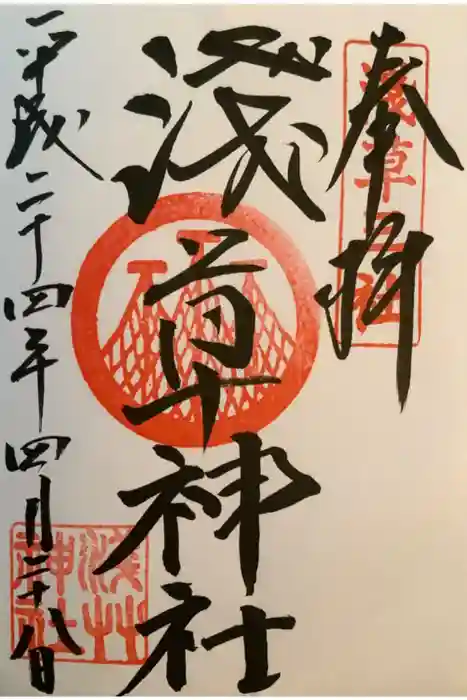 奉拝
淺草三社
淺草神社
平成二十四年四月二十八日
淺草神社